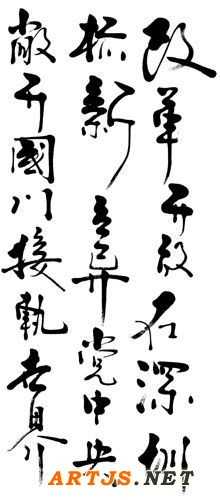 改革开放在深圳
标新立异党中央
敞开國门接軌世界
ARTJS.NET